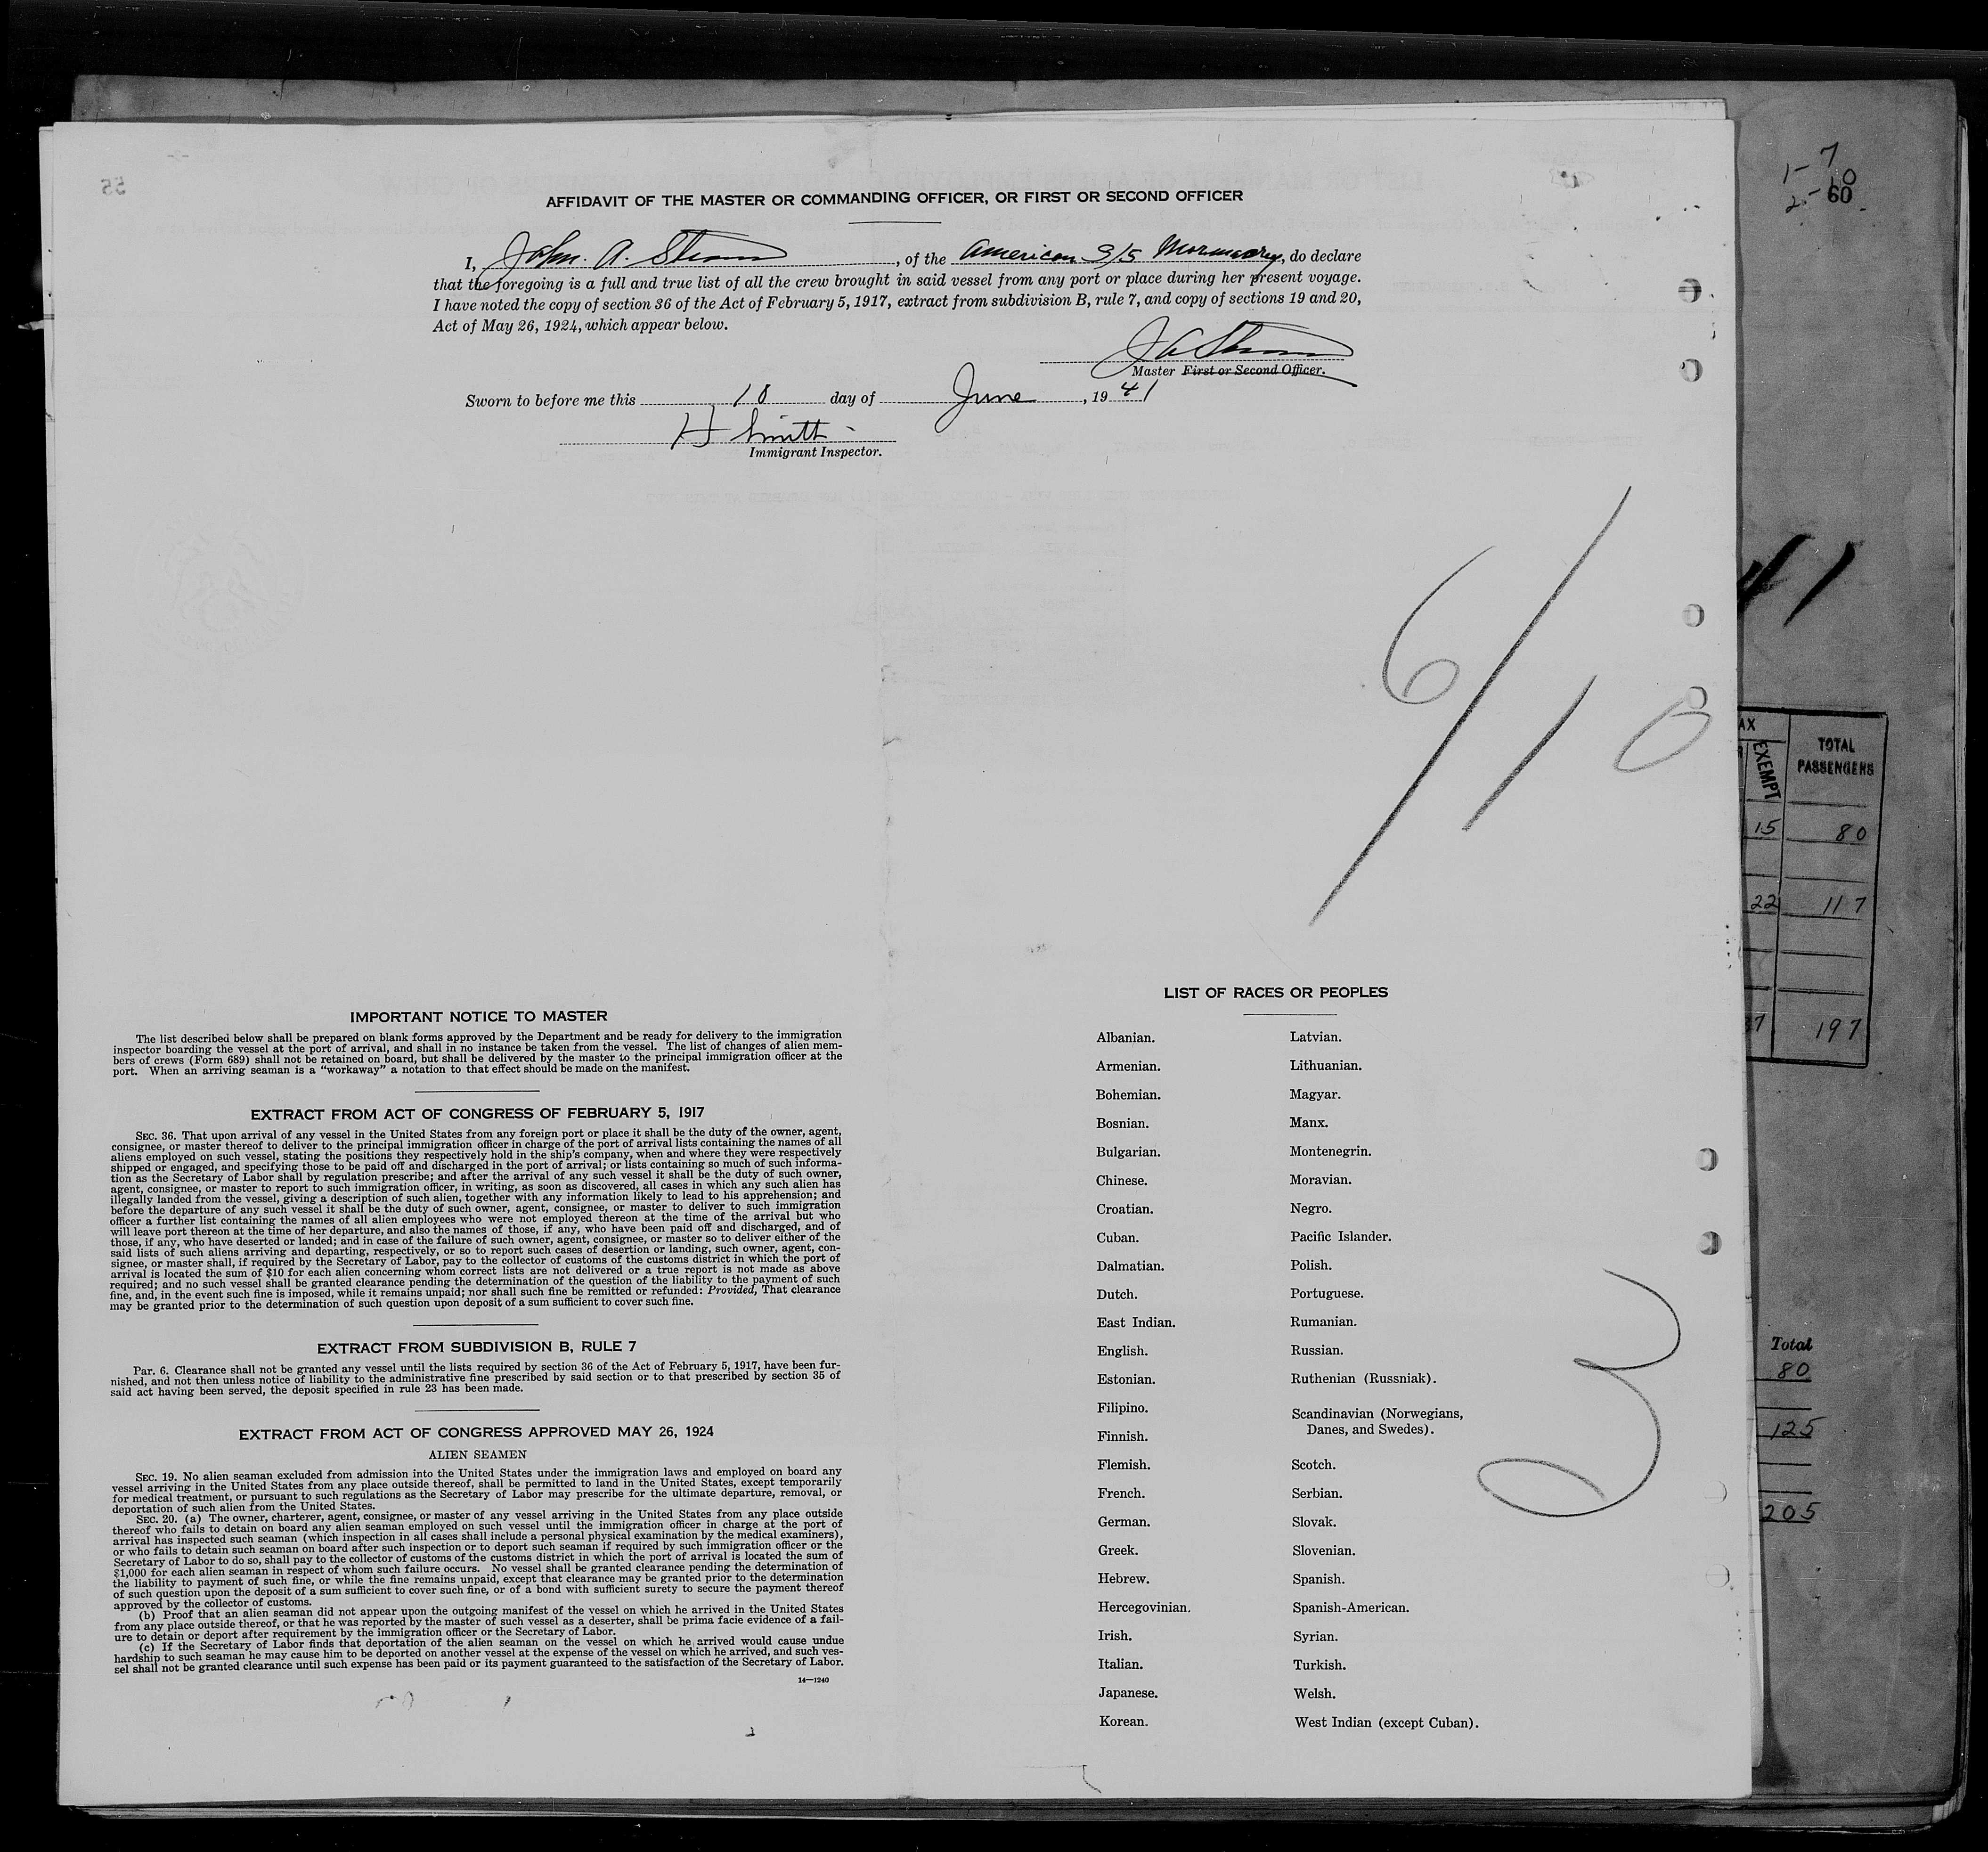 55
1- 7
2- 10
60
AFFIDAVIT OF THE MASTER OR COMMANDING OFFICER, OR FIRST OR SECOND OFFICER
I, John. A. , of the American S/S , do declare
that the foregoing is a full and true list of all the crew brought in said vessel from any port or place during her present voyage.
I have noted the copy of section 36 of the Act of February 5, 1917, extract from subdivision B, rule 7, and copy of sections 19 and 20,
Act of May 26, 1924, which appear below.
Master First or Second Officer.
Sworn to before me this 10 day of June, 1941
H Smith
Immigrant Inspector.
6/10
41
AX
EXEMPT
TOTAL
PASSENGERS
15 80
22 117
37 197
IMPORTANT NOTICE TO MASTER
The list described below shall be prepared on blank forms approved by the Department and be ready for delivery to the immigration
inspector boarding the vessel at the port of arrival, and shall in no instance be taken from the vessel. The list of changes of alien mem-
bers of crews (Form 689) shall not be retained on board, but shall be delivered by the master to the principal immigration officer at the
port. When an arriving seaman is a "workaway" a notation to that effect should be made on the manifest.
EXTRACT FROM ACT OF CONGRESS OF FEBRUARY 5, 1917
SEC. 36. That upon arrival of any vessel in the United States from any foreign port or place it shall be the duty of the owner, agent,
consignee, or master thereof to deliver to the principal immigration officer in charge of the port of arrival lists containing the names of all
aliens employed on such vessel, stating the positions they respectively hold in the ship's company, when and where they were respectively
shipped or engaged, and specifying those to be paid off and discharged in the port of arrival; or lists containing so much of such informa-
tion as the Secretary of Labor shall by regulation prescribe; and after the arrival of any such vessel it shall be the duty of such owner,
agent, consignee, or master to report to such immigration officer, in writing, as soon as discovered, all cases in which any such alien has
illegally landed from the vessel, giving a description of such alien, together with any information likely to lead to his apprehension; and
before the departure of any such vessel it shall be the duty of such owner, agent, consignee, or master to deliver to such immigration
officer a further list containing the names of all alien employees who were not employed thereon at the time of the arrival but who
will leave port thereon at the time of her departure, and also the names of those, if any, who have been paid off and discharged, and of
those, if any, who have deserted or landed; and in case of the failure of such owner, agent, consignee, or master so to deliver either of the
said lists of such aliens arriving and departing, respectively, or so to report such cases of desertion or landing, such owner, agent, con-
signee, or master shall, if required by the Secretary of Labor, pay to the collector of customs of the customs district in which the port of
arrival is located the sum of $10 for each alien concerning whom correct lists are not delivered or a true report is not made as above
required; and no such vessel shall be granted clearance pending the determination of the question of the liability to the payment of such
fine, and, in the event such fine is imposed, while it remains unpaid; nor shall such fine be remitted or refunded: Provided, That clearance
may be granted prior to the determination of such question upon deposit of a sum sufficient to cover such fine.
EXTRACT FROM SUBDIVISION B, RULE 7
Par. 6. Clearance shall not be granted any vessel until the lists required by section 36 of the Act of February 5, 1917, have been fur-
nished, and not then unless notice of liability to the administrative fine prescribed by said section or to that prescribed by section 35 of
said act having been served, the deposit specified in rule 23 has been made.
EXTRACT FROM ACT OF CONGRESS APPROVED MAY 26, 1924
ALIEN SEAMEN
SEC. 19. No alien seaman excluded from admission into the United States under the immigration laws and employed on board any
vessel arriving in the United States from any place outside thereof, shall be permitted to land in the United States, except temporarily
for medical treatment, or pursuant to such regulations as the Secretary of Labor may prescribe for the ultimate departure, removal, or
deportation of such alien from the United States.
SEC. 20. (a) The owner, charterer, agent, consignee, or master of any vessel arriving in the United States from any place outside
thereof who fails to detain on board any alien seaman employed on such vessel until the immigration officer in charge at the port of
arrival has inspected such seaman (which inspection in all cases shall include a personal physical examination by the medical examiners),
or who fails to detain such seaman on board after such inspection or to deport such seaman if required by such immigration officer or the
Secretary of Labor to do so, shall pay to the collector of customs of the customs district in which the port of arrival is located the sum of
$1,000 for each alien seaman in respect of whom such failure occurs. No vessel shall be granted clearance pending the determination of
the liability to payment of such fine, or while the fine remains unpaid, except that clearance may be granted prior to the determination
of such question upon the deposit of a sum sufficient to cover such fine, or of a bond with sufficient surety to secure the payment thereof
approved by the collector of customs.
(b) Proof that an alien seaman did not appear upon the outgoing manifest of the vessel on which he arrived in the United States
from any place outside thereof, or that he was reported by the master of such vessel as a deserter, shall be prima facie evidence of a fail-
ure to detain or deport after requirement by the immigration officer or the Secretary of Labor.
(c) If the Secretary of Labor finds that deportation of the alien seaman on the vessel on which he arrived would cause undue
hardship to such seaman he may cause him to be deported on another vessel at the expense of the vessel on which he arrived, and such ves-
sel shall not be granted clearance until such expense has been paid or its payment guaranteed to the satisfaction of the Secretary of Labor.
14—1240
LIST OF RACES OR PEOPLES
Albanian. Latvian.
Armenian. Lithuanian.
Bohemian. Magyar.
Bosnian. Manx.
Bulgarian. Montenegrin.
Chinese. Moravian.
Croatian. Negro.
Cuban. Pacific Islander.
Dalmatian. Polish.
Dutch. Portuguese.
East Indian. Rumanian.
English. Russian.
Estonian. Ruthenian (Russniak).
Filipino. Scandinavian (Norwegians,
Finnish. Danes, and Swedes).
Flemish. Scotch.
French. Serbian.
German. Slovak.
Greek. Slovenian.
Hebrew. Spanish.
Hercegovinian. Spanish-American.
Irish. Syrian.
Italian. Turkish.
Japanese. Welsh.
Korean. West Indian (except Cuban).
3
Total
80
125
205